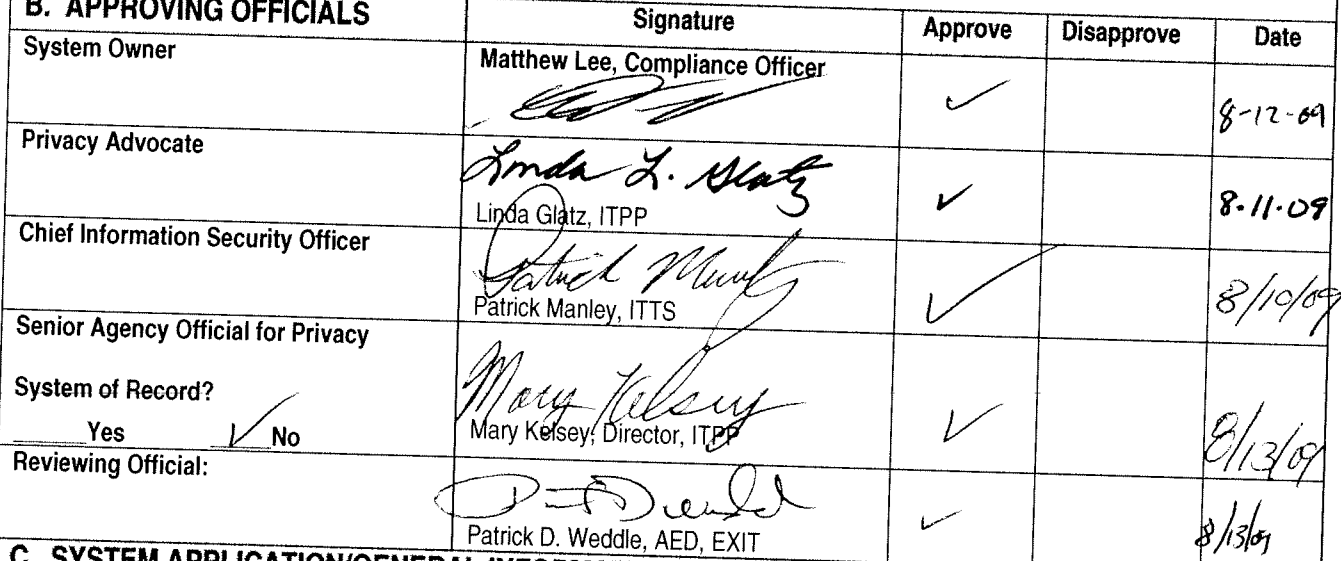 B. APPROVING OFFICIALS Signature Approve Disapprove Date
System Owner Matthew Lee, Compliance Officer ✓ 8-12-09
Privacy Advocate Linda L. Glatz ✓ 8-11-09
Linda Glatz, ITPP
Chief Information Security Officer Patrick Manley ✓ 8/10/09
Patrick Manley, ITTS
Senior Agency Official for Privacy
System of Record? Mary Kelsey ✓ 8/13/09
___Yes ✓ No Mary Kelsey, Director, ITPP
Reviewing Official: ✓ 8/13/09
Patrick D. Weddle, AED, EXIT
C. SYSTEM APPLICATION/GENERAL